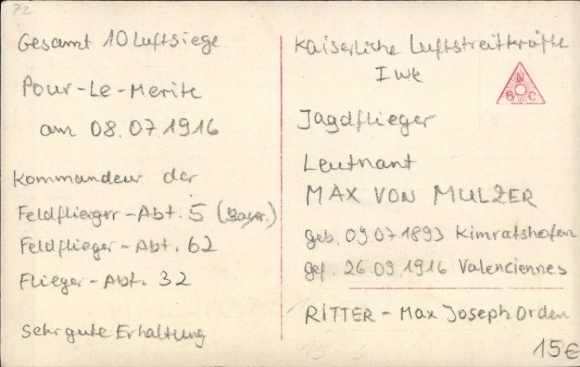 72
Gesamt 10 Luftsiege
Pour-Le-Merite
am 08.07.1916
Kommandeur der
Feldflieger-Abt. 5 (Bayr.)
Feldflieger-Abt. 62
Flieger-Abt. 32
Sehr gute Erhaltung
Kaiserliche Luftstreitkräfte
I WK
N
B C
Jagdflieger
Leutnant
MAX VON MULZER
geb. 09.07.1893 Kimratshofen
gef. 26.09.1916 Valenciennes
RITTER - Max Joseph Orden
15€